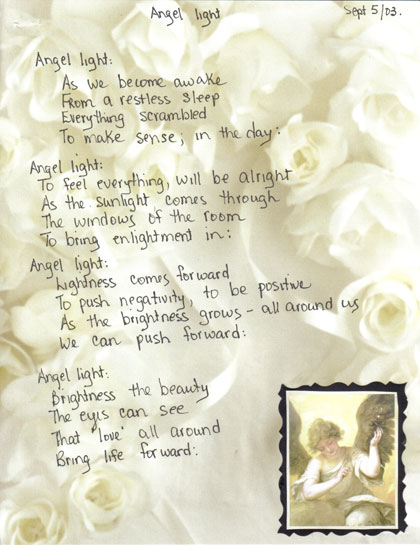 Angel light
Sept 5/03.
Angel light:
As we become awake
From a restless sleep
Everything scrambled
To make sense, in the day:
Angel light:
To feel everything, will be alright
As the sunlight comes through
The windows of the room
To bring enlightment in:
Angel light:
Lightness comes forward
To push negativity, to be positive
As the brightness grows - all around us
We can push forward:
Angel light:
Brightness the beauty
The eyes can see
That "love" all around
Bring life forward: